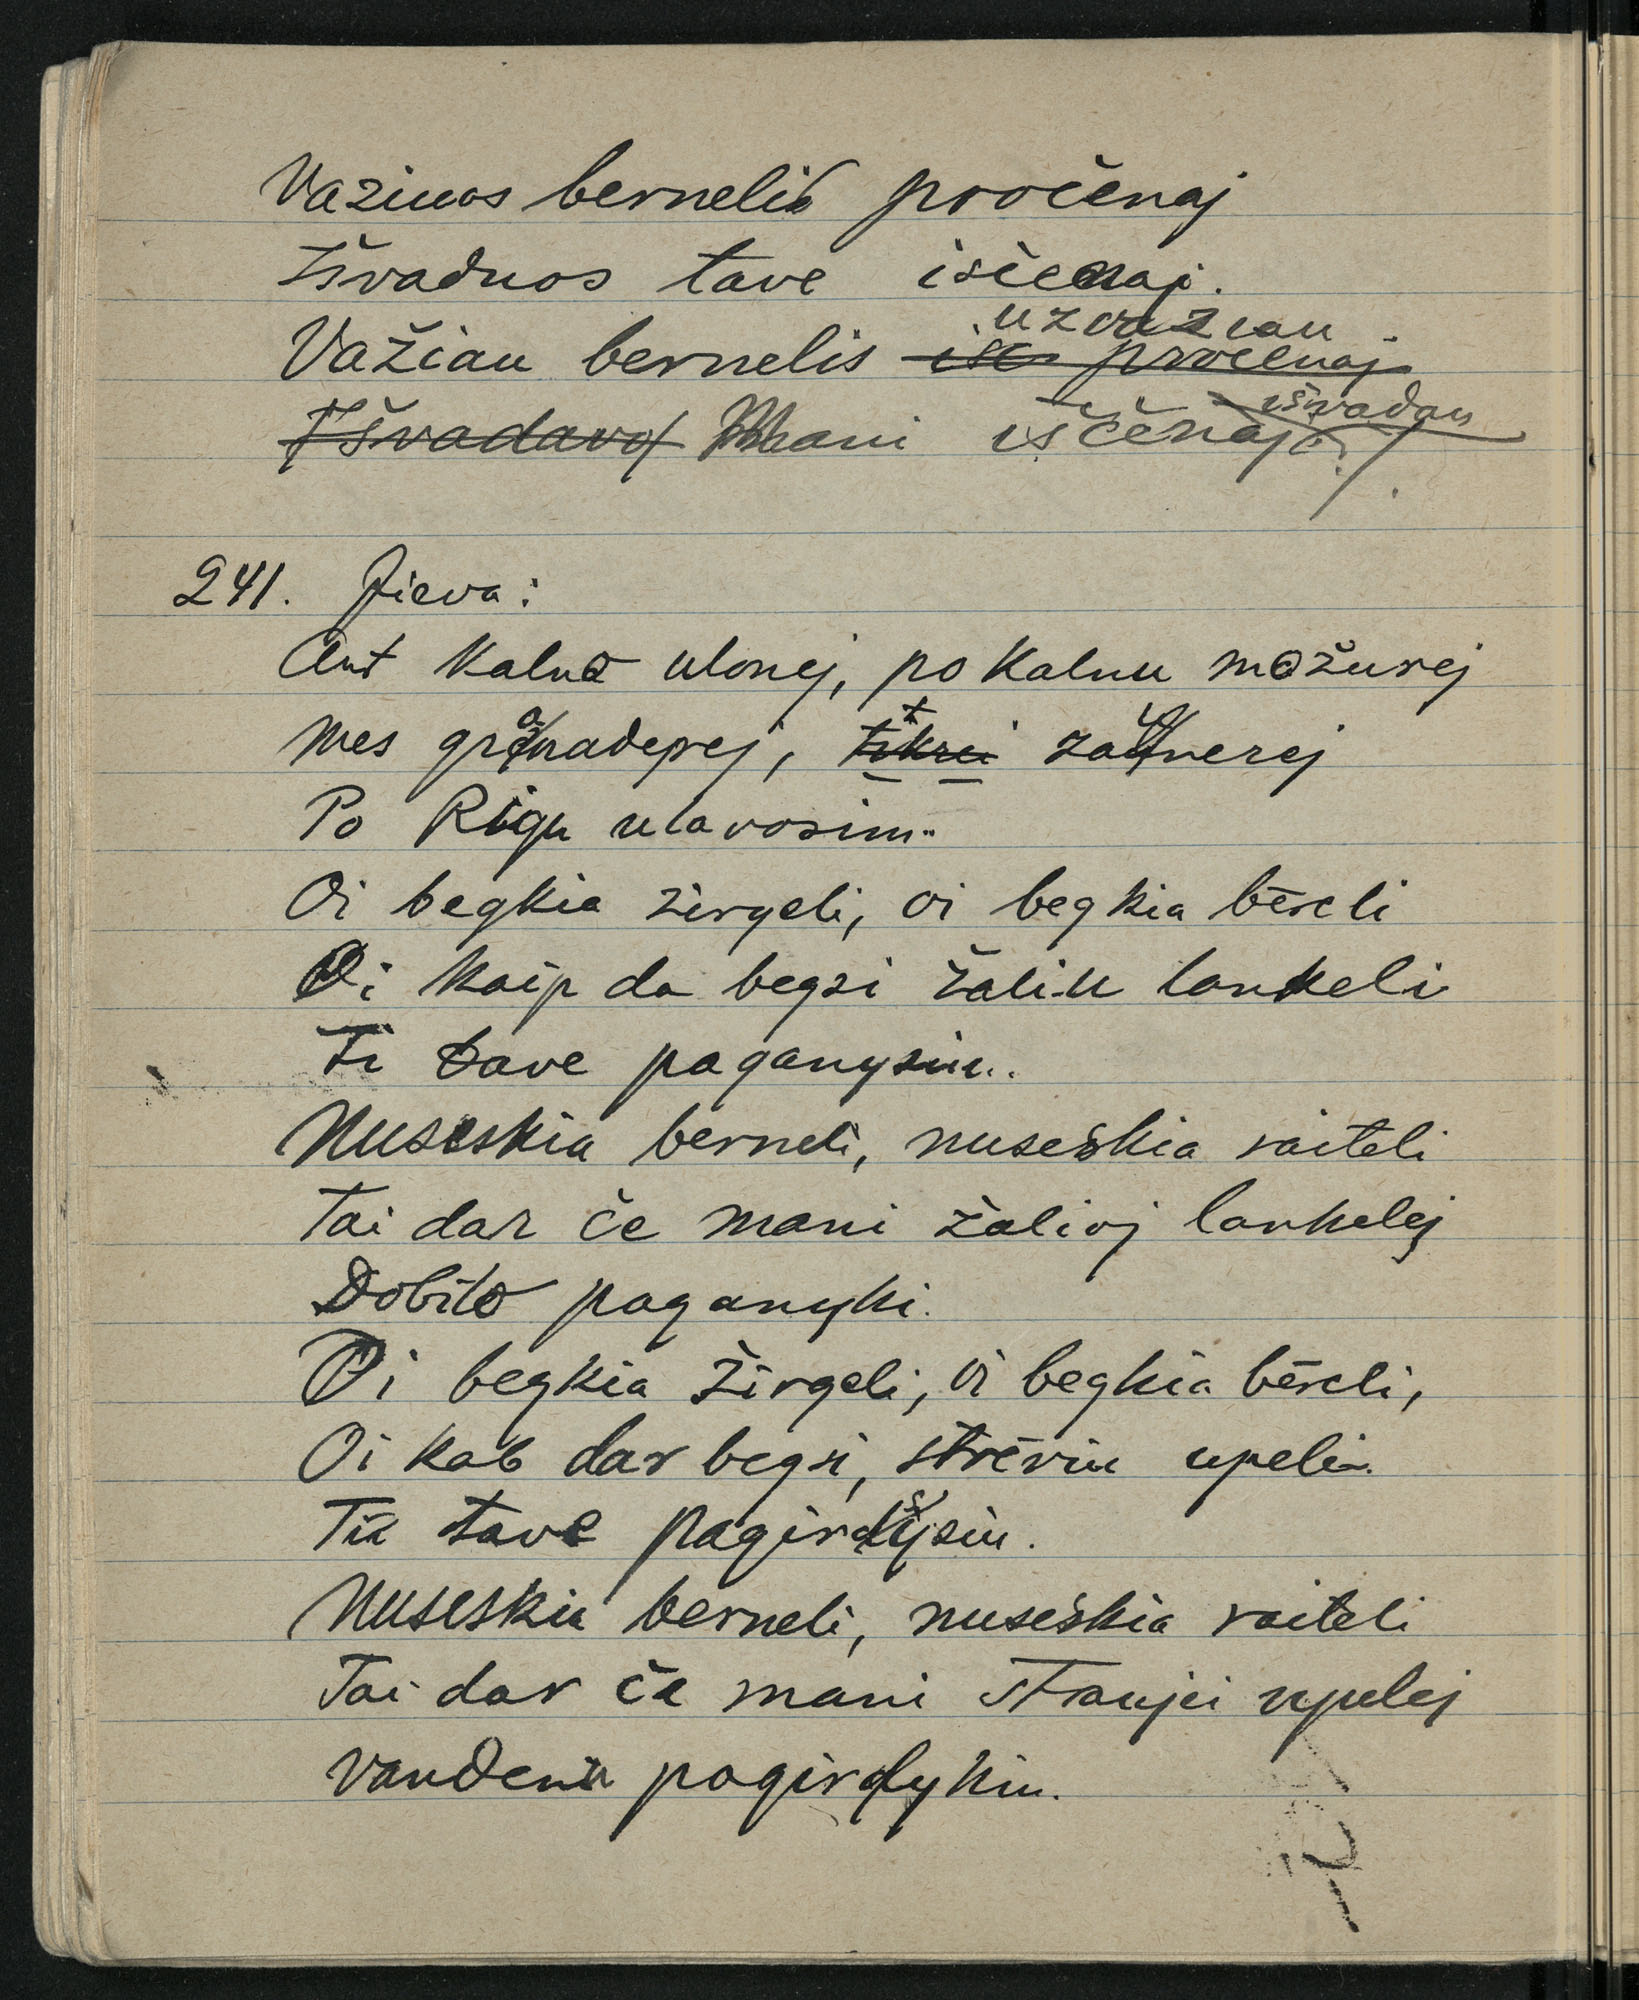 Vaziuos bernelis pročenaj
Išvaduos tave iščenaj.
uzvaziau
Važiau bernelis isc pročenaj
išvadau
Išvadavo Mani iščenaj
241. Jieva:
Ant kalno ulonej, po kalnu možurej
mes granaderej, tikrei zaunerej
Po Rigu ulavosim..
Oi begkia zirgeli, oi begkia bēreli
Oi kaip da begsi žaliu lankeli
Ti tave paganysiu..
Nuseskia berneli, nuseskia raiteli
Tai dar če mani žalioj lankelej
Dobilo paganyki.
Oi begkia žirgeli, oi begkia bēreli,
Oi kab dar begsi, strēviu upeliu
Tik tave pagirdysiu.
Nuseskia berneli, nuseskia raiteli
Tai dar če mani straujei upelej
vandeniu pagirdykiu.